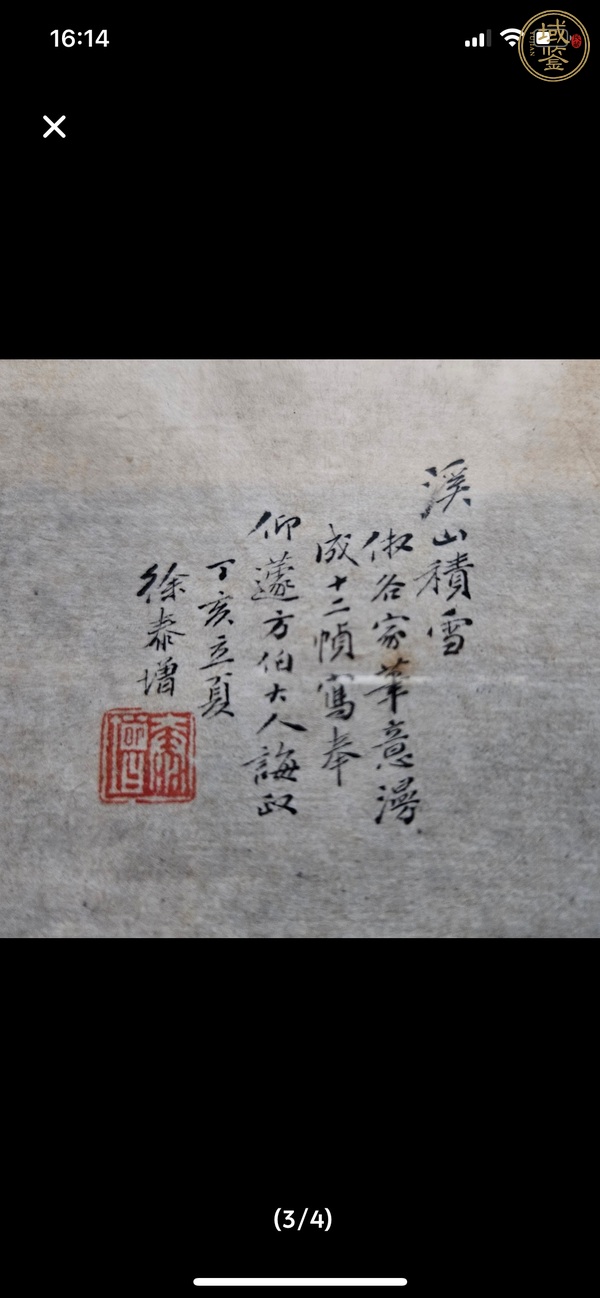 16:14
域鉴
溪山積雪
俶谷家筆意漫
成十二幀寫奉
仰蘧方伯大人誨政
丁亥立夏
徐泰增
(3/4)